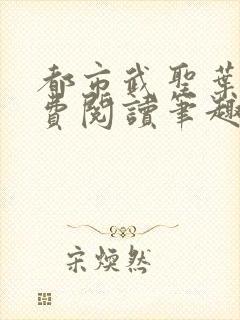 都市武聖葉
費閱讀筆趣
宋煥然